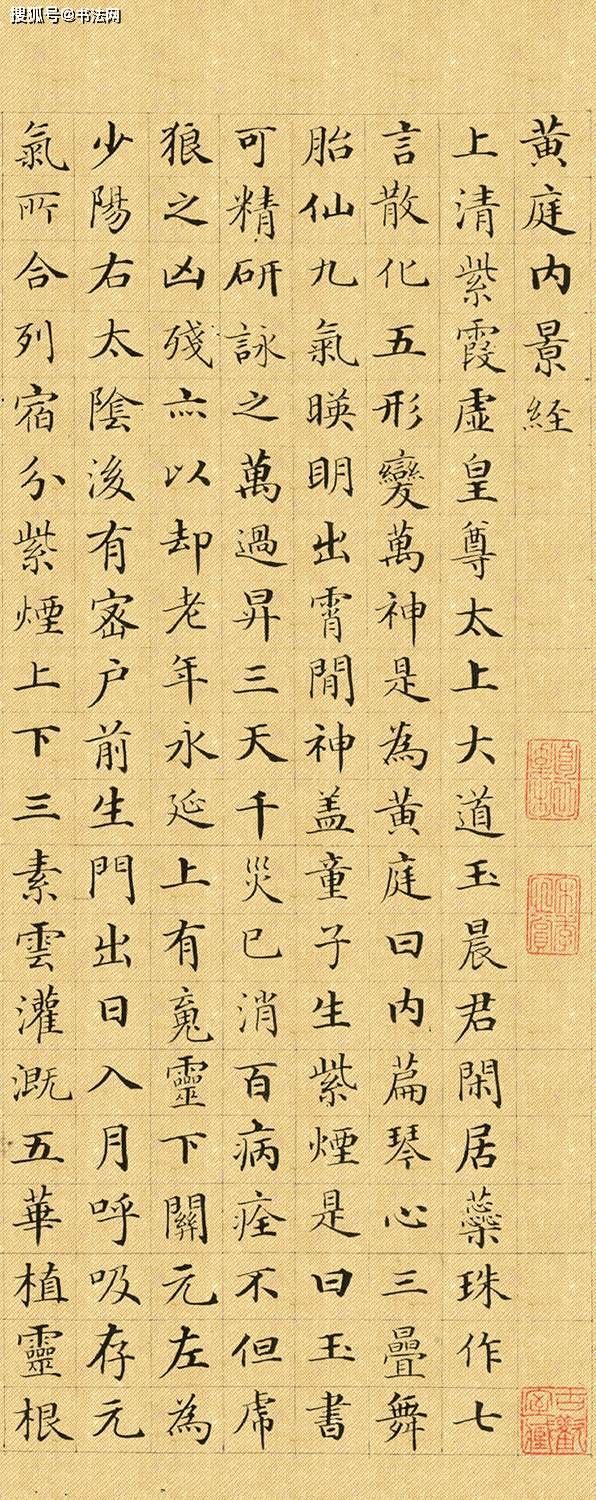 搜狐号@书法网
黄庭内景経
上清紫霞虚皇尊太上大道玉晨君閑居蘂珠作七
言散化五形變萬神是為黄庭曰内篇琴心三疊舞
胎仙九氣暎明出霄間神盖童子生紫煙是曰玉書
可精研詠之萬過昇三天千災已消百病痊不但虎
狼之凶殘亦以却老年永延上有䰟靈下關元左為
少陽右太陰後有密户前生門出日入月呼吸存元
氣所合列宿分紫煙上下三素雲灌溉五華植靈根